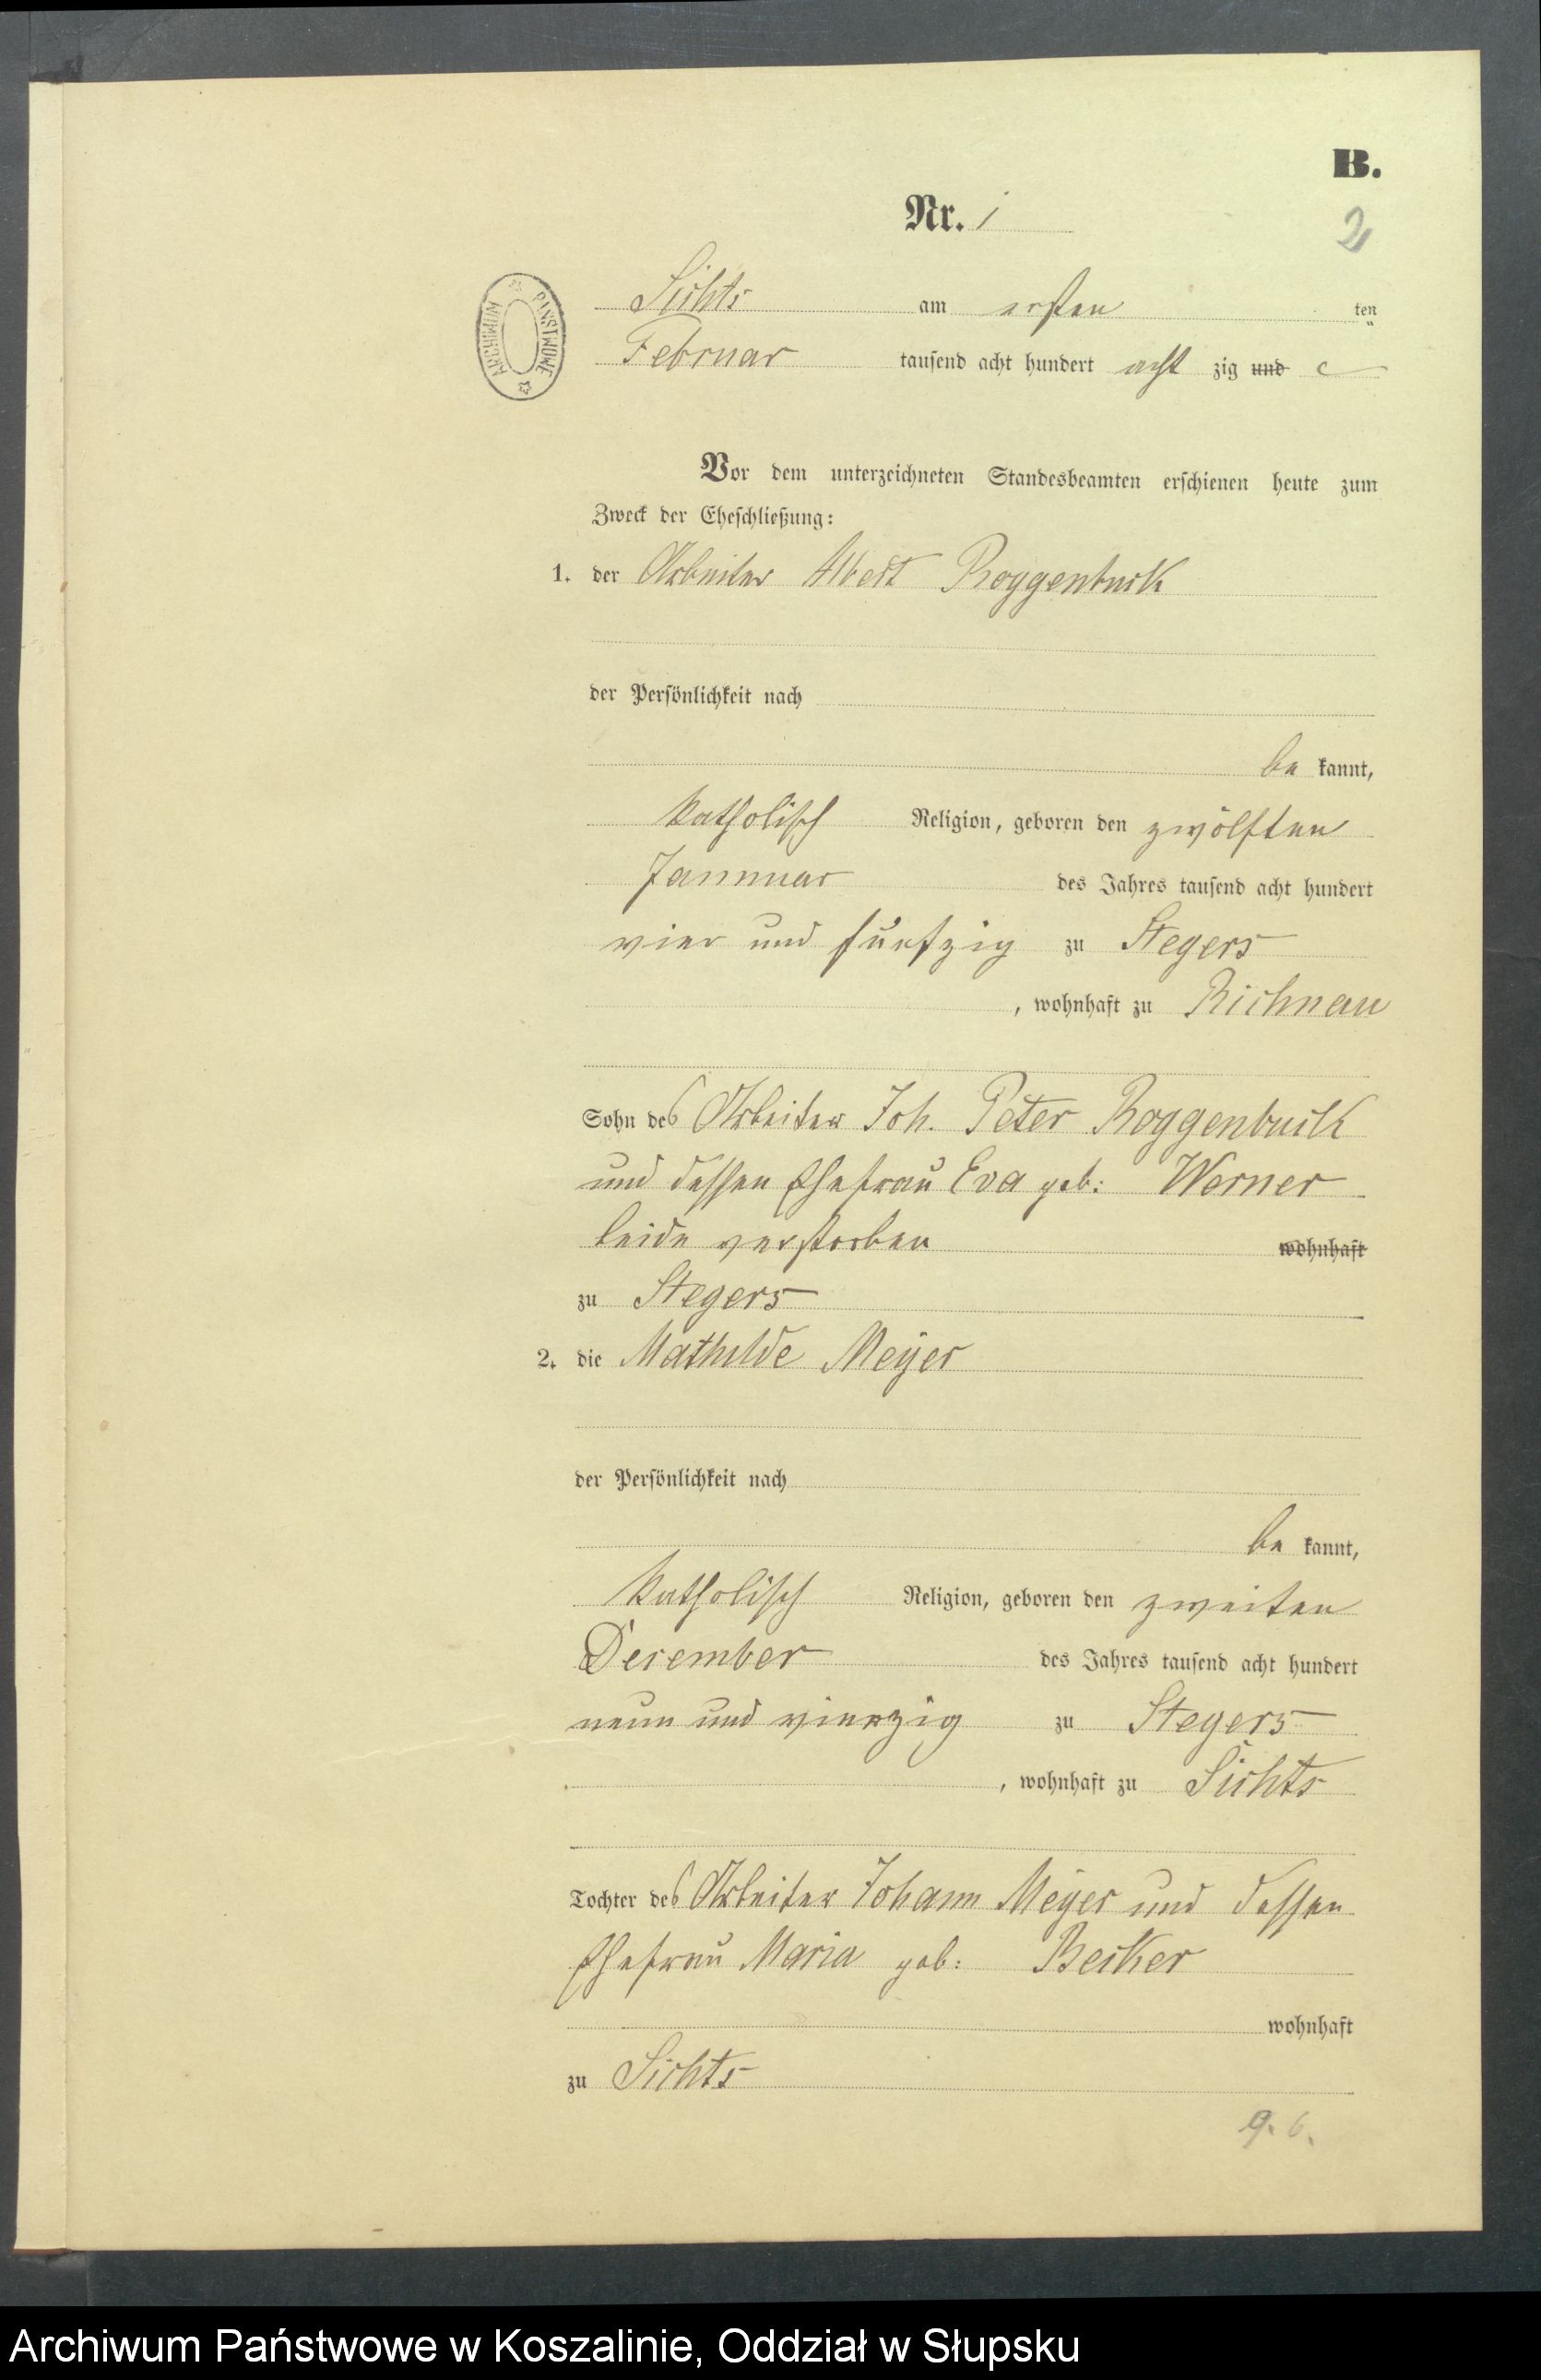 B.
Nr. 1
2
Sichts am ersten ten
Februar tausend acht hundert acht zig und
ARCHIWUM PAŃSTWOWE
Vor dem unterzeichneten Standesbeamten erschienen heute zum
Zweck der Eheschließung:
1. der Arbeiter Albert Roggenbuck
der Persönlichkeit nach
be kannt,
katholisch Religion, geboren den zwölften
Jannuar des Jahres tausend acht hundert
vier und fünfzig zu Stegers
, wohnhaft zu Richnau
Sohn des Arbeiter Joh. Peter Roggenbuck
und dessen Ehefrau Eva geb: Werner
beide verstorben wohnhaft
zu Stegers
2. die Mathilde Meyer
der Persönlichkeit nach
be kannt,
katholisch Religion, geboren den zweiten
December des Jahres tausend acht hundert
neun und vierzig zu Stegers
, wohnhaft zu Sichts
Tochter des Arbeiter Johann Meyer und dessen
Ehefrau Maria geb: Becker
wohnhaft
zu Sichts
9. 6.
Archiwum Państwowe w Koszalinie, Oddział w Słupsku